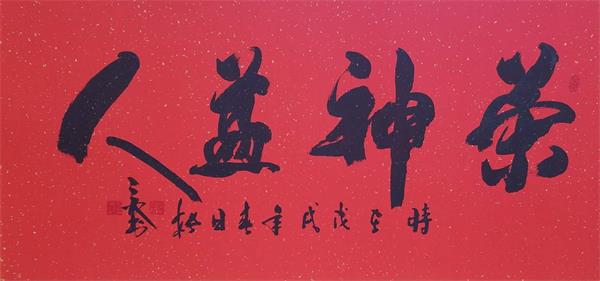 茶神益人
時于戊戌年春日